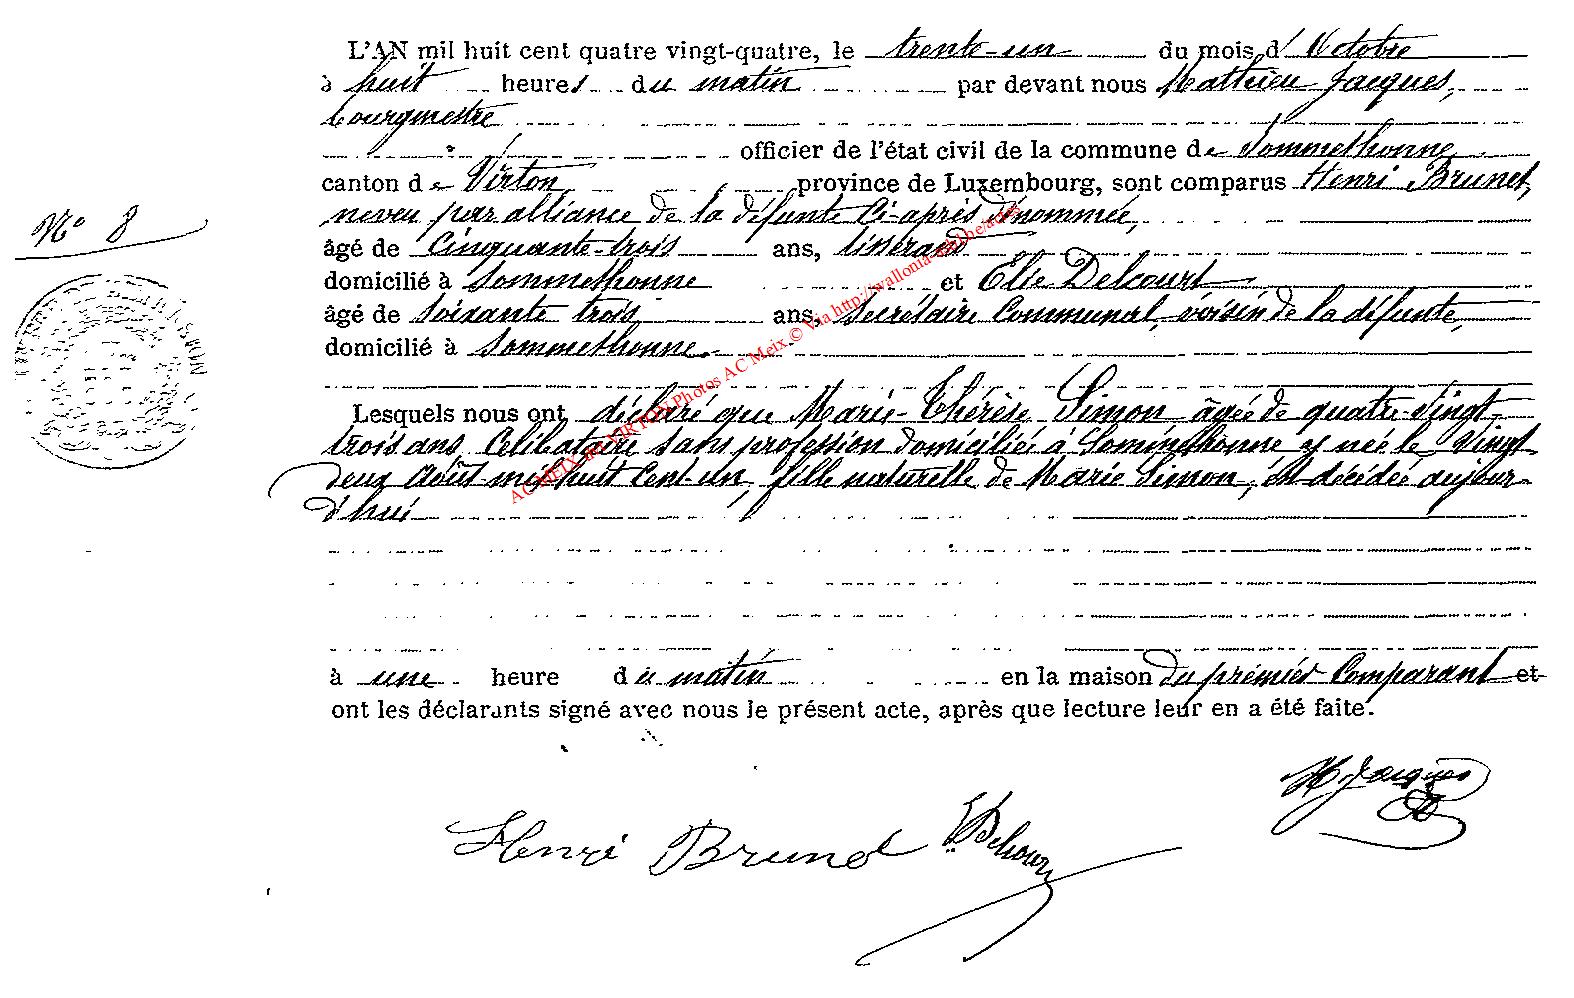 L'AN mil huit cent quatre vingt-quatre, le trente-un du mois d'Octobre
à huit heures du matin par devant nous Mathieu Jacques,
bourgmestre
officier de l'état civil de la commune de Sommethonne
canton de Virton, province de Luxembourg, sont comparus Henri Brunet,
neveu par alliance de la défunte ci-après dénommée,
N° 8
âgé de cinquante-trois ans, tisserand
domicilié à Sommethonne et Elie Delcourt
âgé de soixante trois ans, Secrétaire Communal, voisin de la défunte,
domicilié à Sommethonne.
Lesquels nous ont déclaré que Marie-Thérèse Simon âgée de quatre-vingt-
trois ans, Célibataire sans profession domiciliée à Sommethonne y née le vingt
deux Août mil huit cent-un, fille naturelle de Marie Simon, est décédée aujour-
d'hui
à une heure du matin en la maison du prémiér Comparant et
ont les déclarants signé avec nous le présent acte, après que lecture leur en a été faite.
M Jacques
Henri Brunet E. Delcourt
AC MEIX-dt-VIRTON Photos AC Meix © Via http://wallonia-asbl.be/actes